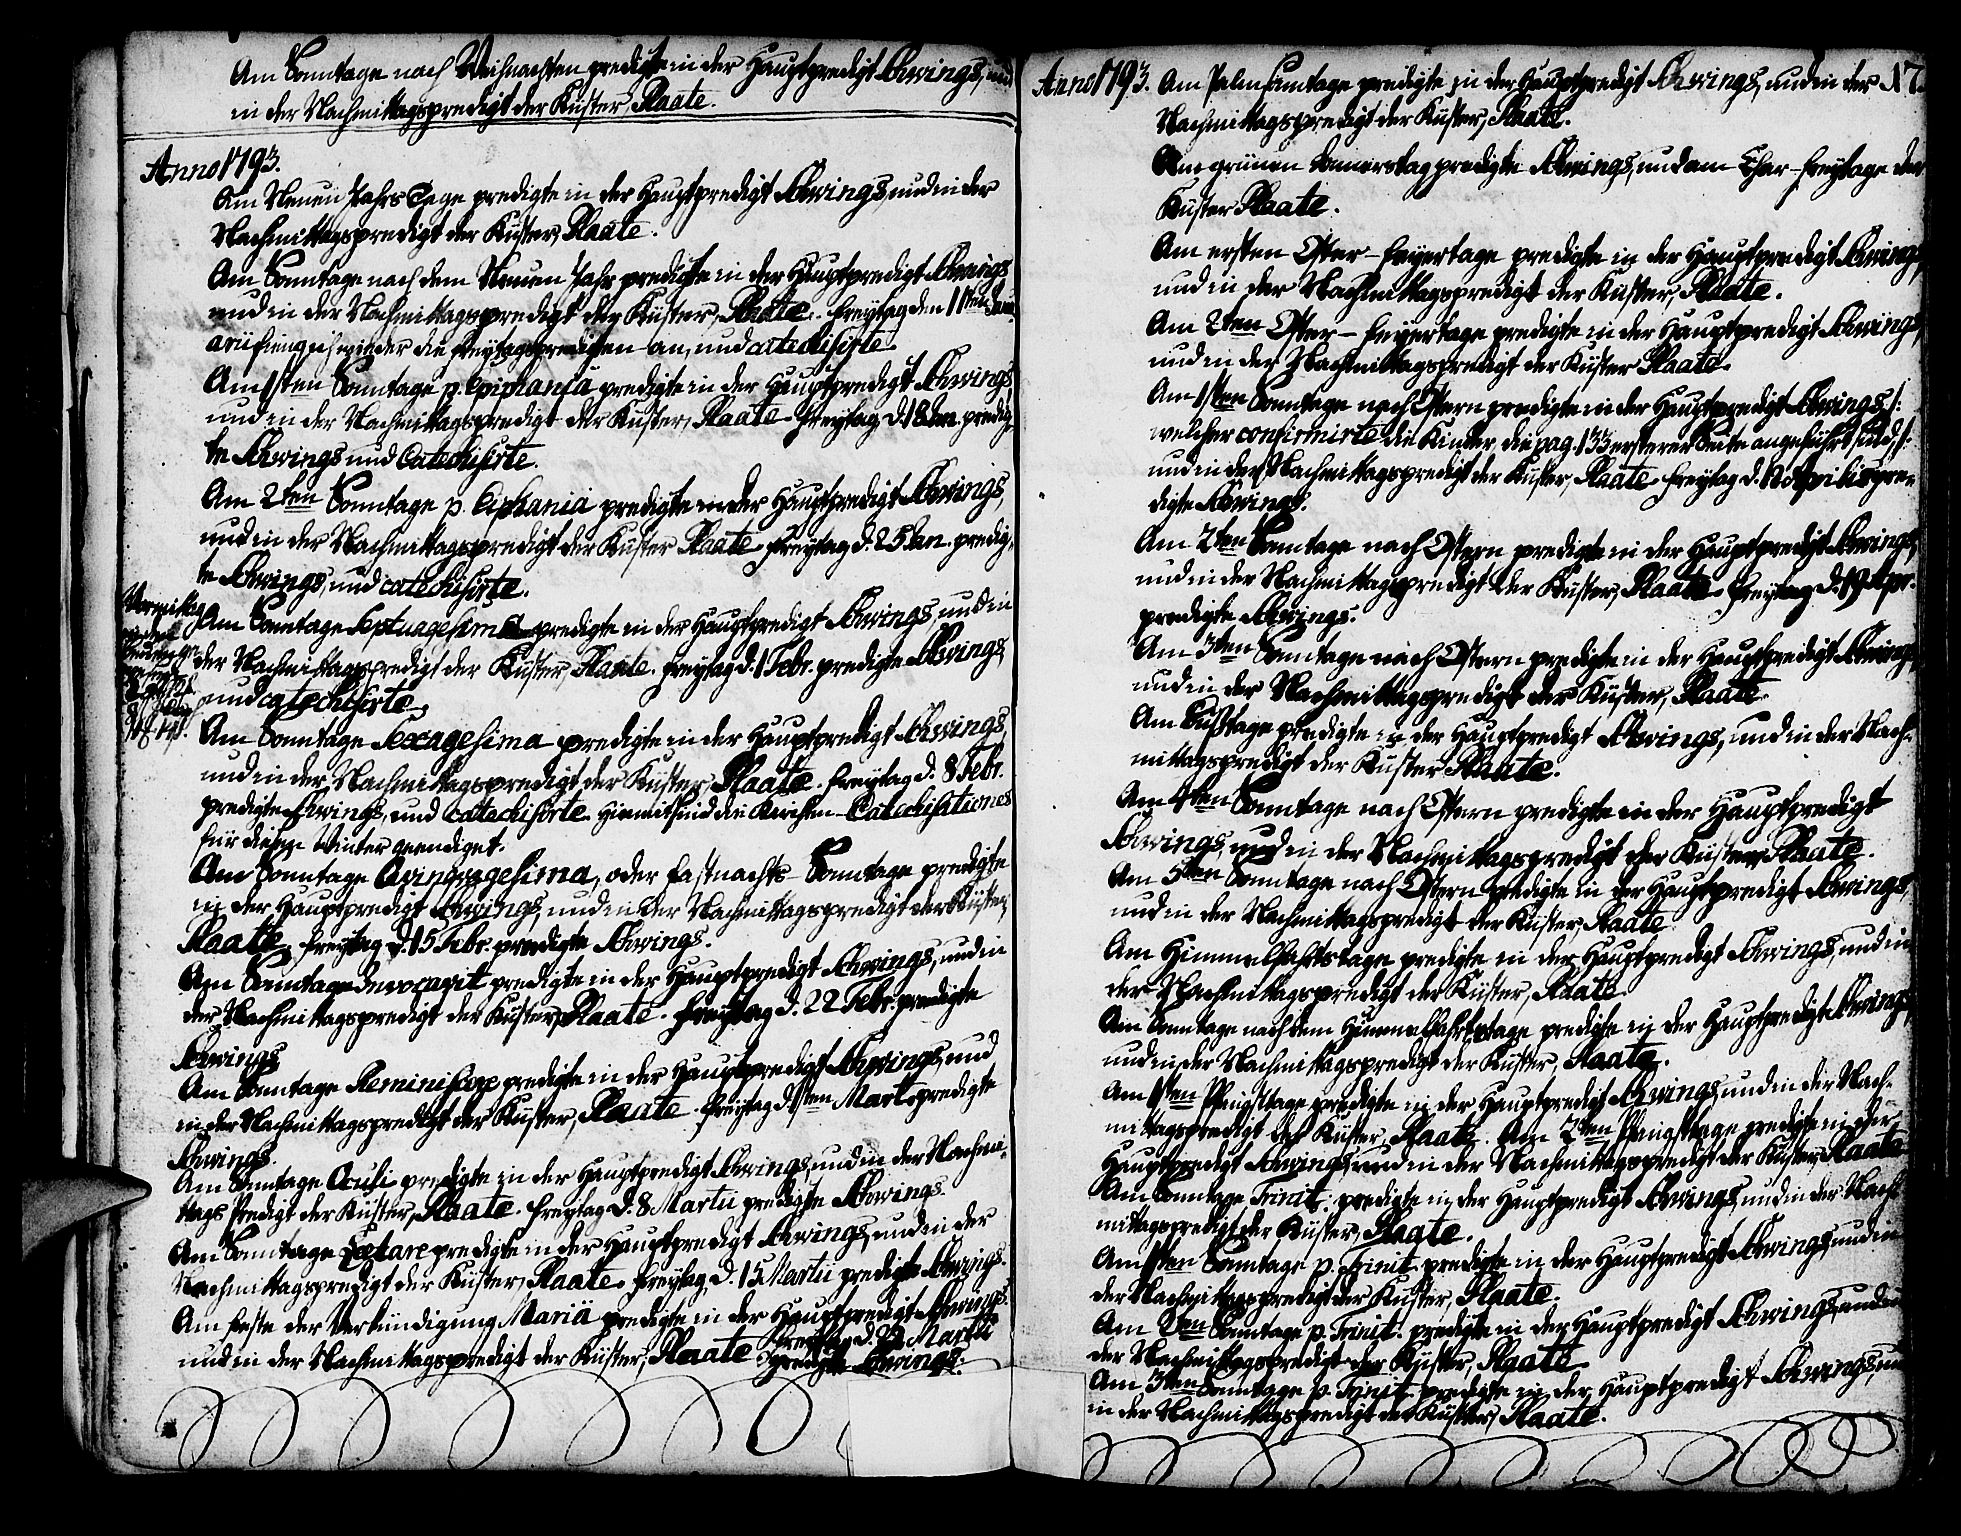 Am Sonntage nach Weihnachten predigte in der Hauptpredigt Schwings, und
in der Nachmittagspredigt der Küster, Plaate.
Anno 1793.
Am Neuen Jahrs Tage predigte in der Hauptpredigt Schwings, und in der
Nachmittagspredigt der Küster, Plaate.
Am Sonntage nach dem Neuen Jahr predigte in der Hauptpredigt Schwings
und in der Nachmittagspredigt der Küster, Plaate. Freytag den 11ten Janu-
arii fieng ich wieder die Freytagspredigten an, und catechisirte.
Am 1sten Sonntage p. Epiphaniä predigte in der Hauptpredigt Schwings,
und in der Nachmittagspredigt der Küster, Plaate. Freytag d. 18 Jan. predig-
te Schwings und Catechisirte.
Am 2ten Sonntage p. Epiphania predigte in der Hauptpredigt Schwings,
und in der Nachmittagspredigt der Küster Plaate. Freytag d. 25 Jan. predig-
te Schwings, und catechisirte.
Vormittag
Am Sonntage Septuagesima predigte in der Hauptpredigt Schwings, und in
der Nachmittagspredigt der Küster, Plaate. Freytag d. 1 Febr. predigte Schwings,
und catechisirte.
Am Sonntage Sexagesima predigte in der Hauptpredigt Schwings,
und in der Nachmittagspredigt der Küster, Plaate. Freytag d. 8 Febr.
predigte Schwings, und catechisirte. Hiermit sind die Kirchen-Catechisationes
für diesen Winter geendiget.
Am Sonntage Quinquagesima, oder Fastnachts-Sonntage predigte
in der Hauptpredigt Schwings, und in der Nachmittagspredigt der Küster,
Plaate. Freytag d. 15 Febr. predigte Schwings.
Am Sonntage Invocavit predigte in der Hauptpredigt Schwings, und in
der Nachmittagspredigt der Küster, Plaate. Freytag d. 22 Febr. predigte
Schwings
Am Sonntage Reminiscere predigte in der Hauptpredigt Schwings, und
in der Nachmittagspredigt der Küster, Plaate. Freytag d. 1sten Mart. predigte
Schwings.
Am Sonntage Oculi predigte in der Hauptpredigt Schwings, und in der Nachmi-
ttags Predigt der Küster, Plaate. Freytag d. 8 Martii predigte Schwings.
Am Sonntage Lætare predigte in der Hauptpredigt Schwings, und in der
Nachmittagspredigt der Küster, Plaate. Freytag d. 15 Martii predigte Schwings.
Am Feste der Verkündigung Mariä predigte in der Hauptpredigt Schwings.
und in der Nachmittagspredigt der Küster, Plaate. Freytag d. Martii
predigte Schwings.
Anno 1793. Am Palmsonntage predigte in der Hauptpredigt Schwings, und in der 17
Nachmittagspredigt der Küster, Plaate.
Am grünen Donnerstag predigte Schwings, und am Char-Freytage der
Küster Plaate.
Am ersten Oster-Feyertage predigte in der Hauptpredigt Schwings,
und in der Nachmittagspredigt der Küster, Plaate.
Am 2ten Oster-Feyertage predigte in der Hauptpredigt Schwings,
und in der Nachmittagspredigt der Küster Plaate.
Am 1sten Sonntage nach Ostern predigte in der Hauptpredigt Schwings, /:
welcher confirmirte die Kinder, die pag. 133 ersterer Seite angeführt sind, :/
und in der Nachmittagspredigt der Küster, Plaate. Freytag d. 12 Aprilis pre-
digte Schwings.
Am 2ten Sonntage nach Ostern predigte in der Hauptpredigt Schwings,
und in der Nachmittagspredigt der Küster, Plaate. Freytag d. 19 Apr.
predigte Schwings.
Am 3ten Sonntage nach Ostern predigte in der Hauptpredigt Schwings,
und in der Nachmittagspredigt der Küster, Plaate.
Am Bußtage predigte in der Hauptpredigt Schwings, und in der Nach-
mittagspredigt der Küster Plaate.
Am 4ten Sonntage nach Ostern predigte in der Hauptpredigt
Schwings, und in der Nachmittagspredigt der Küster, Plaate.
Am 5ten Sonntage nach Ostern predigte in der Hauptpredigt Schwings,
und in der Nachmittagspredigt der Küster, Plaate.
Am Himmelfahrtstage predigte in der Hauptpredigt Schwings, und in
der Nachmittagspredigt der Küster, Plaate.
Am Sonntage nach dem Himmelfahrtstage predigte in der Hauptpredigt Schwings,
und in der Nachmittagspredigt der Küster, Plaate.
Am 1sten Pfingsttage predigte in der Hauptpredigt Schwings, und in der Nach-
mittagspredigt der Küster, Plaate. Am 2ten Pfingsttage predigte in der
Hauptpredigt Schwings, und in der Nachmittagspredigt der Küster Plaate.
Am Sonntage Trinit. predigte in der Hauptpredigt Schwings, und in der Nach-
mittagspredigt der Küster, Plaate.
Am 1sten Sonntage p. Trinit. predigte in der Hauptpredigt Schwings, und in
der Nachmittagspredigt der Küster, Plaate.
Am 2ten Sonntage p. Trinit. predigte in der Hauptpredigt Schwings, und in
der Nachmittagspredigt der Küster, Plaate.
Am 3ten Sonntage p. Trinit. predigte in der Hauptpredigt Schwings, und
in der Nachmittagspredigt der Küster, Plaate.